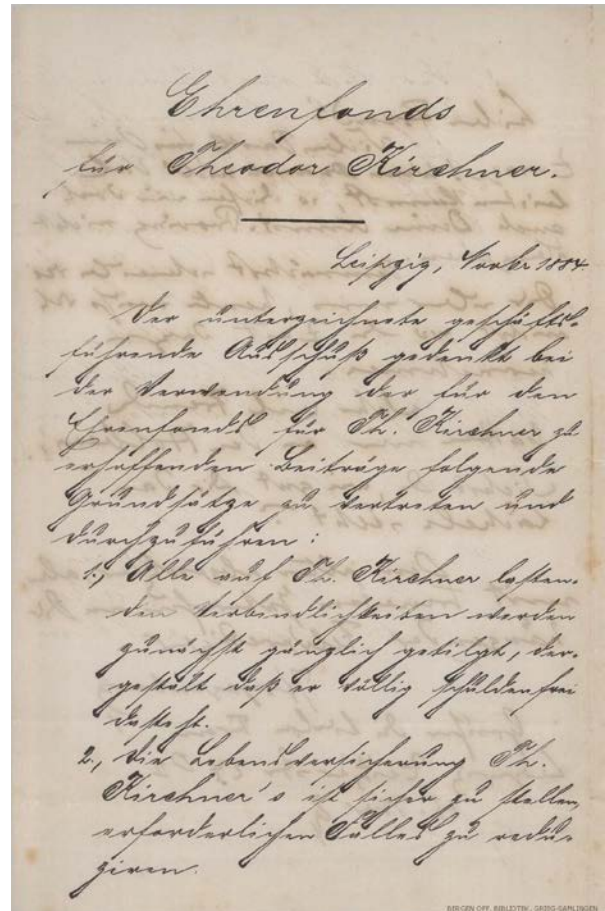 Ehrenfonds
für Theodor Kirchner.
Leipzig, Novbr 1884.
Der unterzeichnete geschäfts-
führende Ausschuß gedenkt bei
der Verwendung der für den
Ehrenfonds für Th. Kirchner zu
erhoffenden Beiträge folgende
Grundsätze zu vertreten und
durchzuführen:
1., Alle auf Th. Kirchner lasten-
den Verbindlichkeiten werden
zunächst gänzlich getilgt, der-
gestalt daß er völlig schuldenfrei
dasteht.
2., die Lebensversicherung Th.
Kirchner's ist sicher zu stellen,
erforderlichen Falles zu redu-
ziren.
BERGEN OFF. BIBLIOTEK. GRIEG-SAMLINGEN